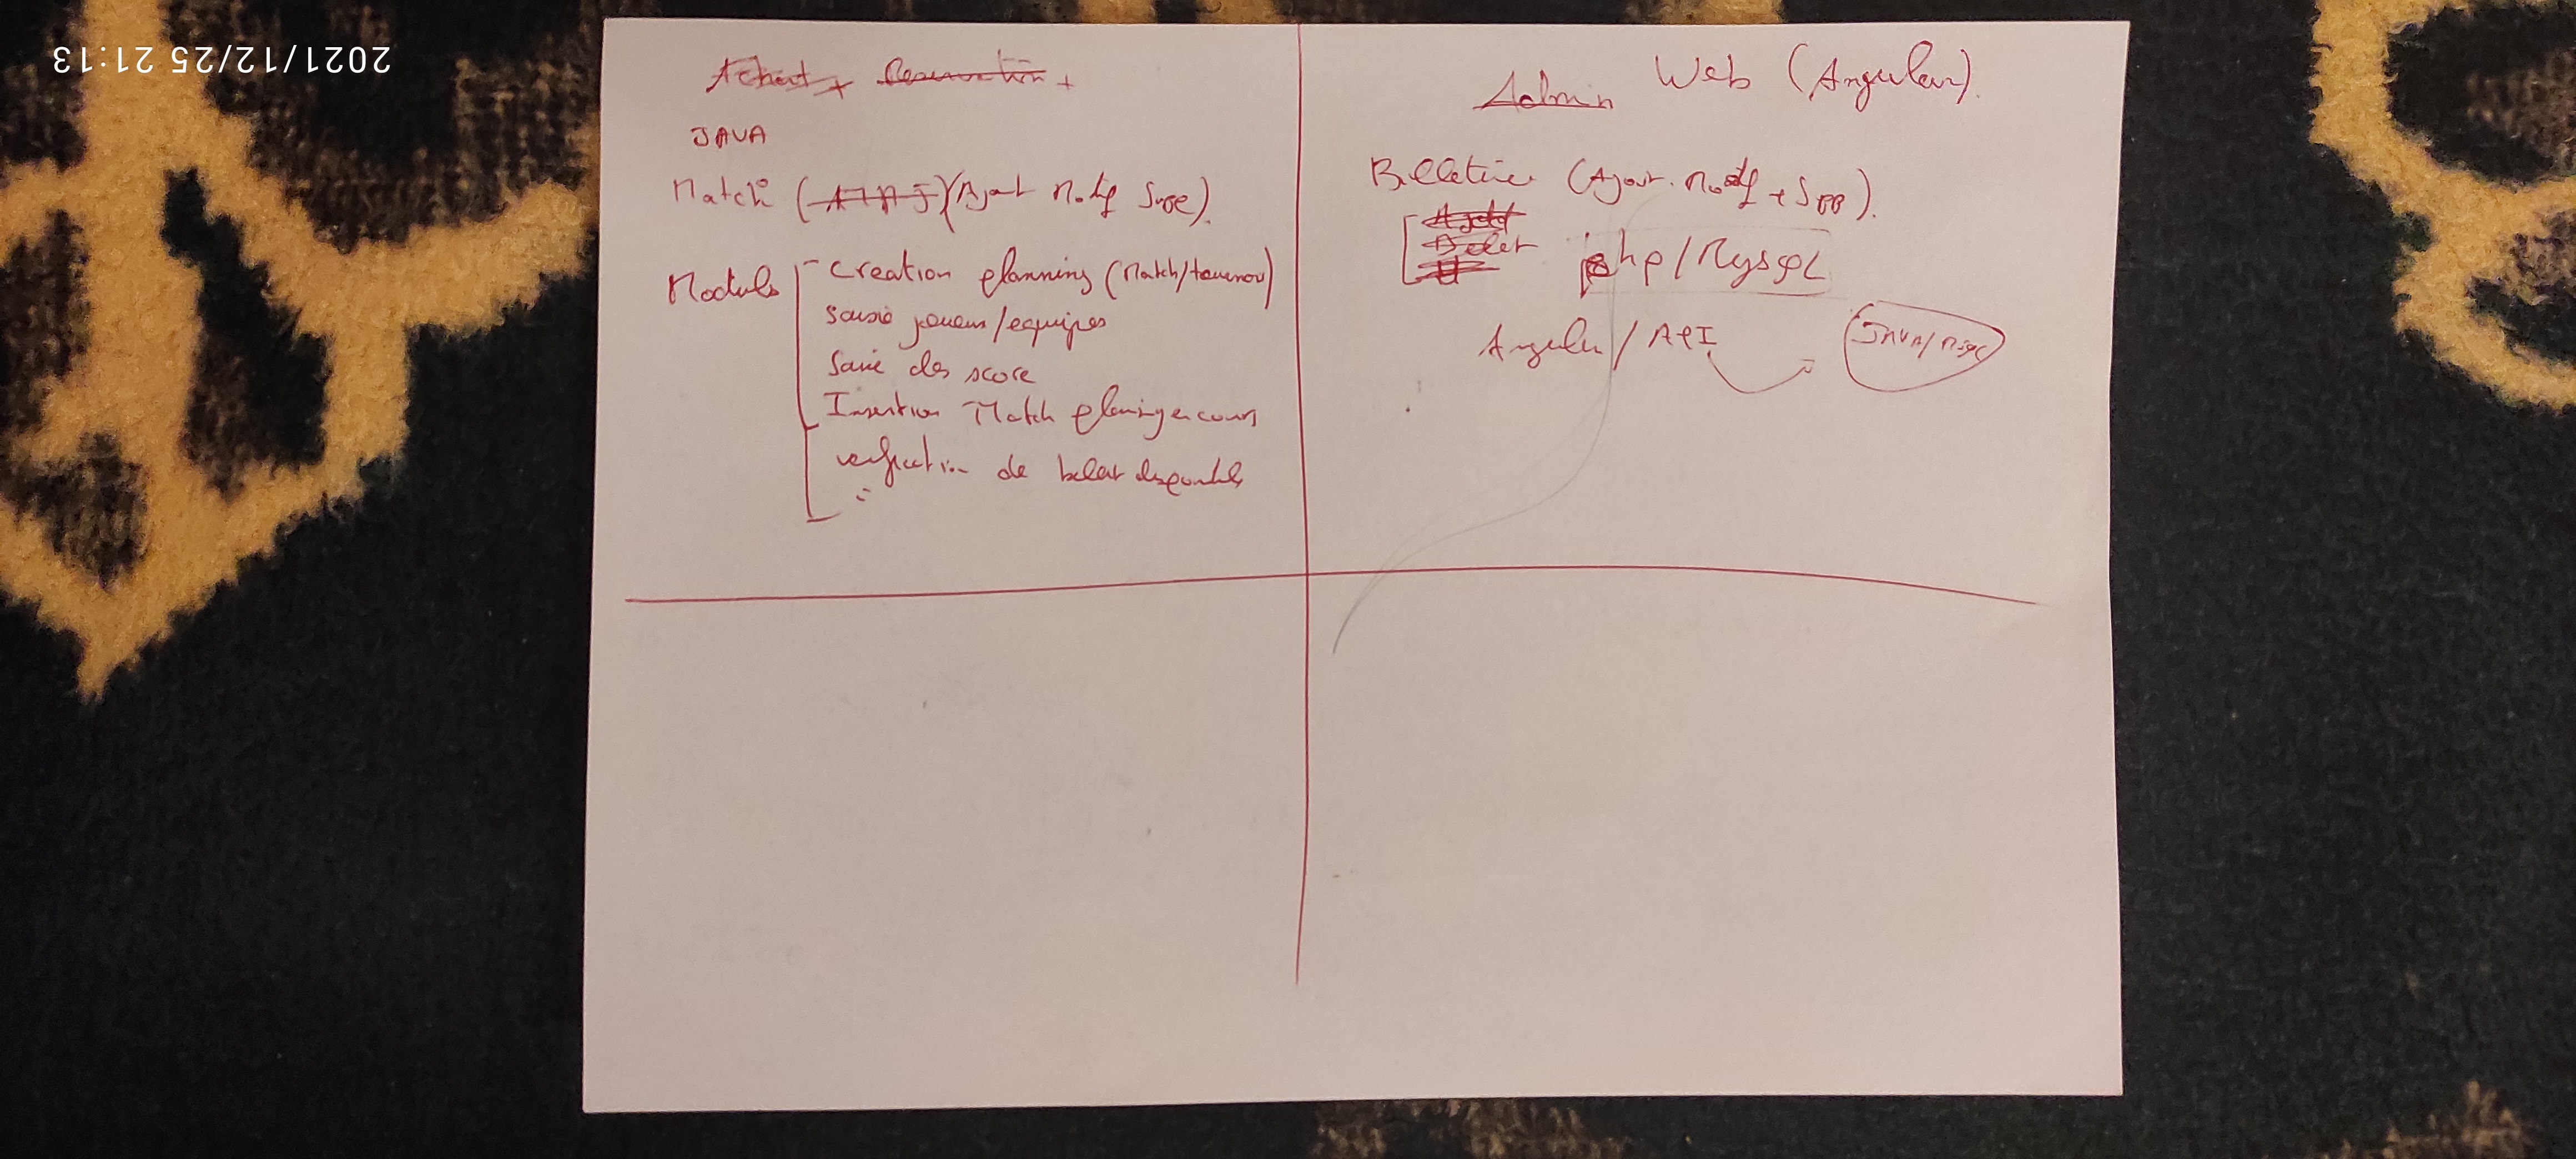 2021/12/25 21:13
Achat + Reservation +
JAVA
Match (Ajout Modif Supp).
Module
- Creation planning (Match/tournoi)
Saisie joueurs/equipes
Saisie des score
Insertion Match planing en cours
verification de billet disponible
Admin Web (Angular).
Billeterie (Ajout. Modif + Supp).
php/MysqL
Angular/API
JAVA/